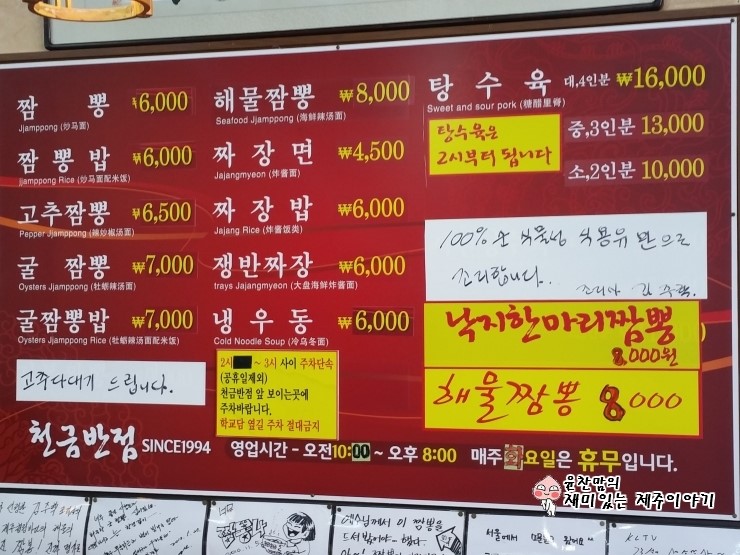 짬 뽕 ₩6,000
Jjamppong (炒马面)
짬뽕밥 ₩6,000
jjamppong Rice (炒马面配米饭)
고추짬뽕 ₩6,500
Pepper Jjamppong (辣炒椒汤面)
굴 짬뽕 ₩7,000
Oysters Jjamppong (牡蛎辣汤面)
굴짬뽕밥 ₩7,000
Oysters Jjamppong Rice (牡蛎辣汤面配米饭)
고추다대기 드립니다.
해물짬뽕 ₩8,000
Seafood Jjamppong (海鲜辣汤面)
짜장면 ₩4,500
Jajangmyeon (炸酱面)
짜장밥 ₩6,000
Jajang Rice (炸酱饭类)
쟁반짜장 ₩6,000
trays Jajangmyeon (大盘海鲜炸酱面)
냉우동 ₩6,000
Cold Noodle Soup (冷乌冬面)
2시 ~ 3시 사이 주차단속
(공휴일제외)
천금반점 앞 보이는곳에
주차바랍니다.
학교담 옆길 주차 절대금지
탕수육 대,4인분 ₩16,000
Sweet and sour pork (糖醋里脊)
중,3인분 13,000
소,2인분 10,000
탕수육은
2시부터 됩니다
100% 순 식물성 식용유 만으로
조리합니다.
낙지한마리짬뽕
8,000원
해물짬뽕 8000
천금반점 SINCE1994 영업시간 - 오전10:00 ~ 오후 8:00 매주 화요일은 휴무입니다.
윤찬맘의
재미있는 제주이야기
예수님께서 이 짬뽕을
드셔봤어야 했다.
서울에서
KCTV